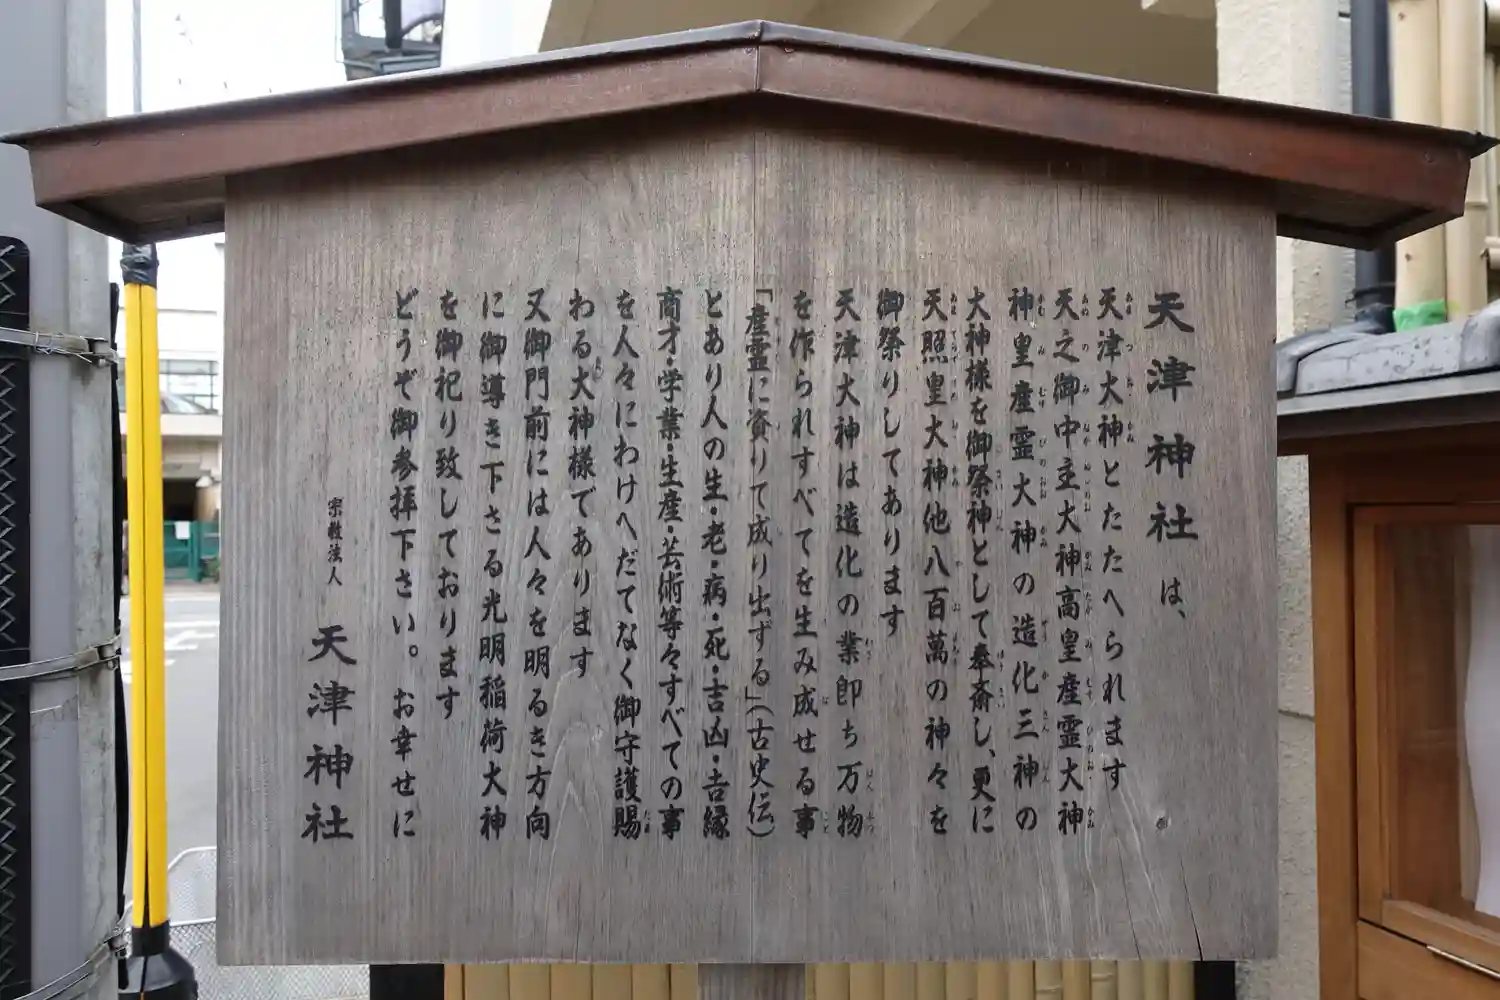 天津神社は、
天津大神とたたへられます
天之御中主大神高皇産霊大神
神皇産霊大神の造化三神の
大神様を御祭神として奉斎し、更に
天照皇大神他八百萬の神々を
御祭りしてあります
天津大神は造化の業即ち万物
を作られすべてを生み成せる事
「産霊に資りて成り出ずる」(古史伝)
とあり人の生・老・病・死・吉凶・吉縁
商才・学業・生産・芸術等々すべての事
を人々にわけへだてなく御守護賜
わる大神様であります
又御門前には人々を明るき方向
に御導き下さる光明稲荷大神
を御祀り致しております
どうぞ御参拝下さい。お幸せに
宗教法人 天津神社